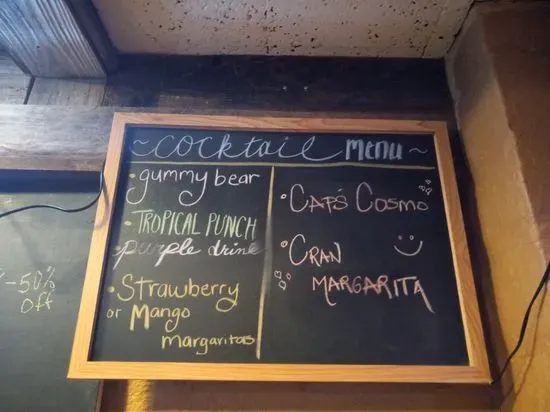 ~cocktail menu~
• gummy bear
• TROPICAL PUNCH
• purple drink
• Strawberry
or Mango
margaritas
• CAP'S COSMO
• CRAN
MARGARITA
-50%
Off